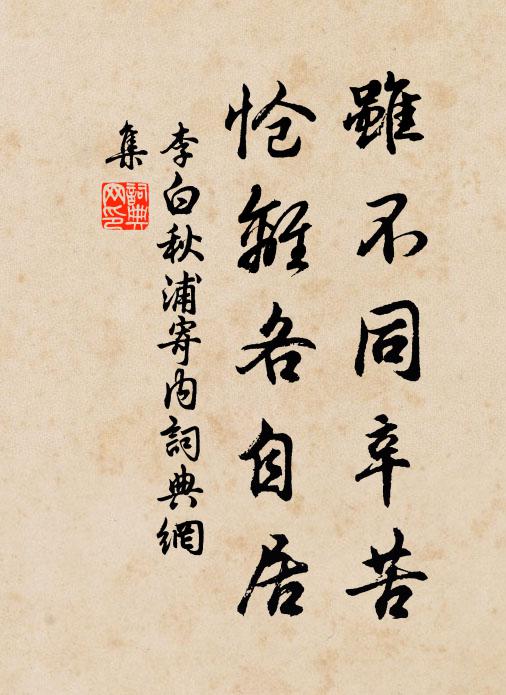 雖不同辛苦
愴離各自居
李白秋浦寄内詞典網
集
詞典
网印